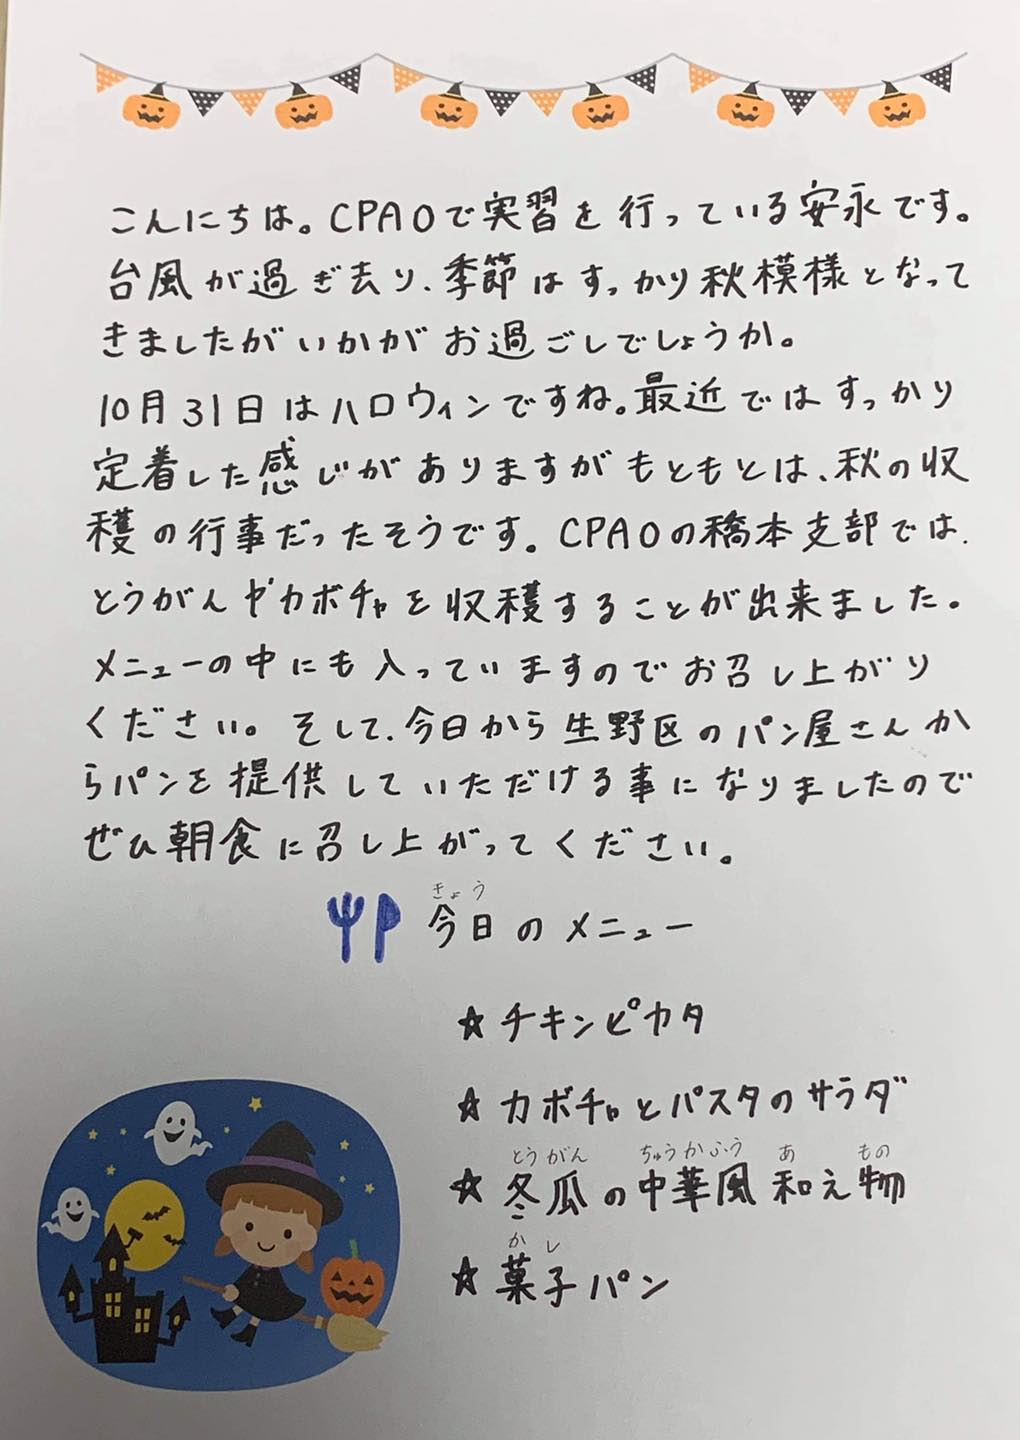 こんにちは。CPAOで実習を行っている安永です。
台風が過ぎ去り、季節はすっかり秋模様となって
きましたがいかがお過ごしでしょうか。
10月31日はハロウィンですね。最近ではすっかり
定着した感じがありますがもともとは、秋の収
穫の行事だったそうです。CPAOの橋本支部では、
とうがんやカボチャを収穫することが出来ました。
メニューの中にも入っていますのでお召し上がり
ください。そして、今日から生野区のパン屋さんか
らパンを提供していただける事になりましたので
ぜひ朝食に召し上がってください。
きょう
今日のメニュー
☆チキンピカタ
☆カボチャとパスタのサラダ
とうがん ちゅうかふう あ もの
☆冬瓜の中華風和え物
かし
☆菓子パン